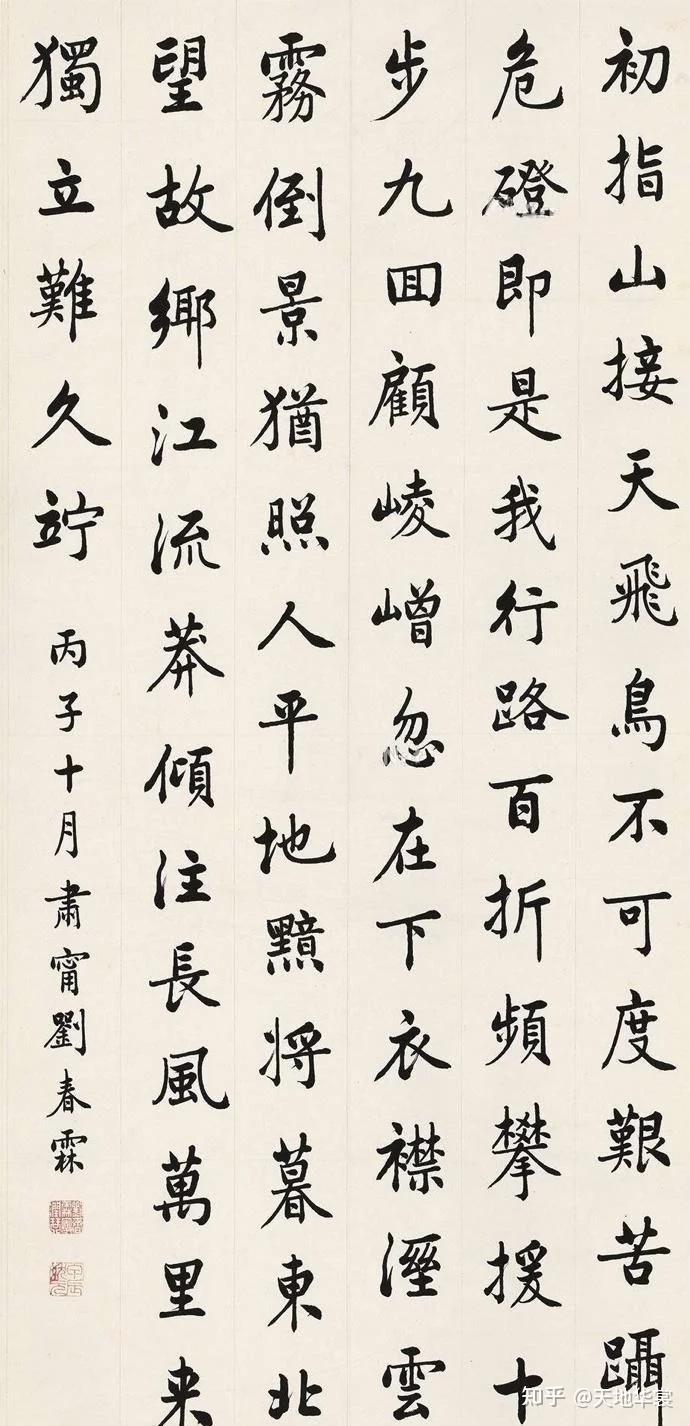 初指山接天飛鳥不可度艱苦躡
危磴即是我行路百折頻攀援十
步九回顧崚嶒忽在下衣襟溼雲
霧倒景猶照人平地黯將暮東北
望故鄉江流莽傾注長風萬里来
獨立難久竚
丙子十月肅甯劉春霖
知乎 @天地华裳